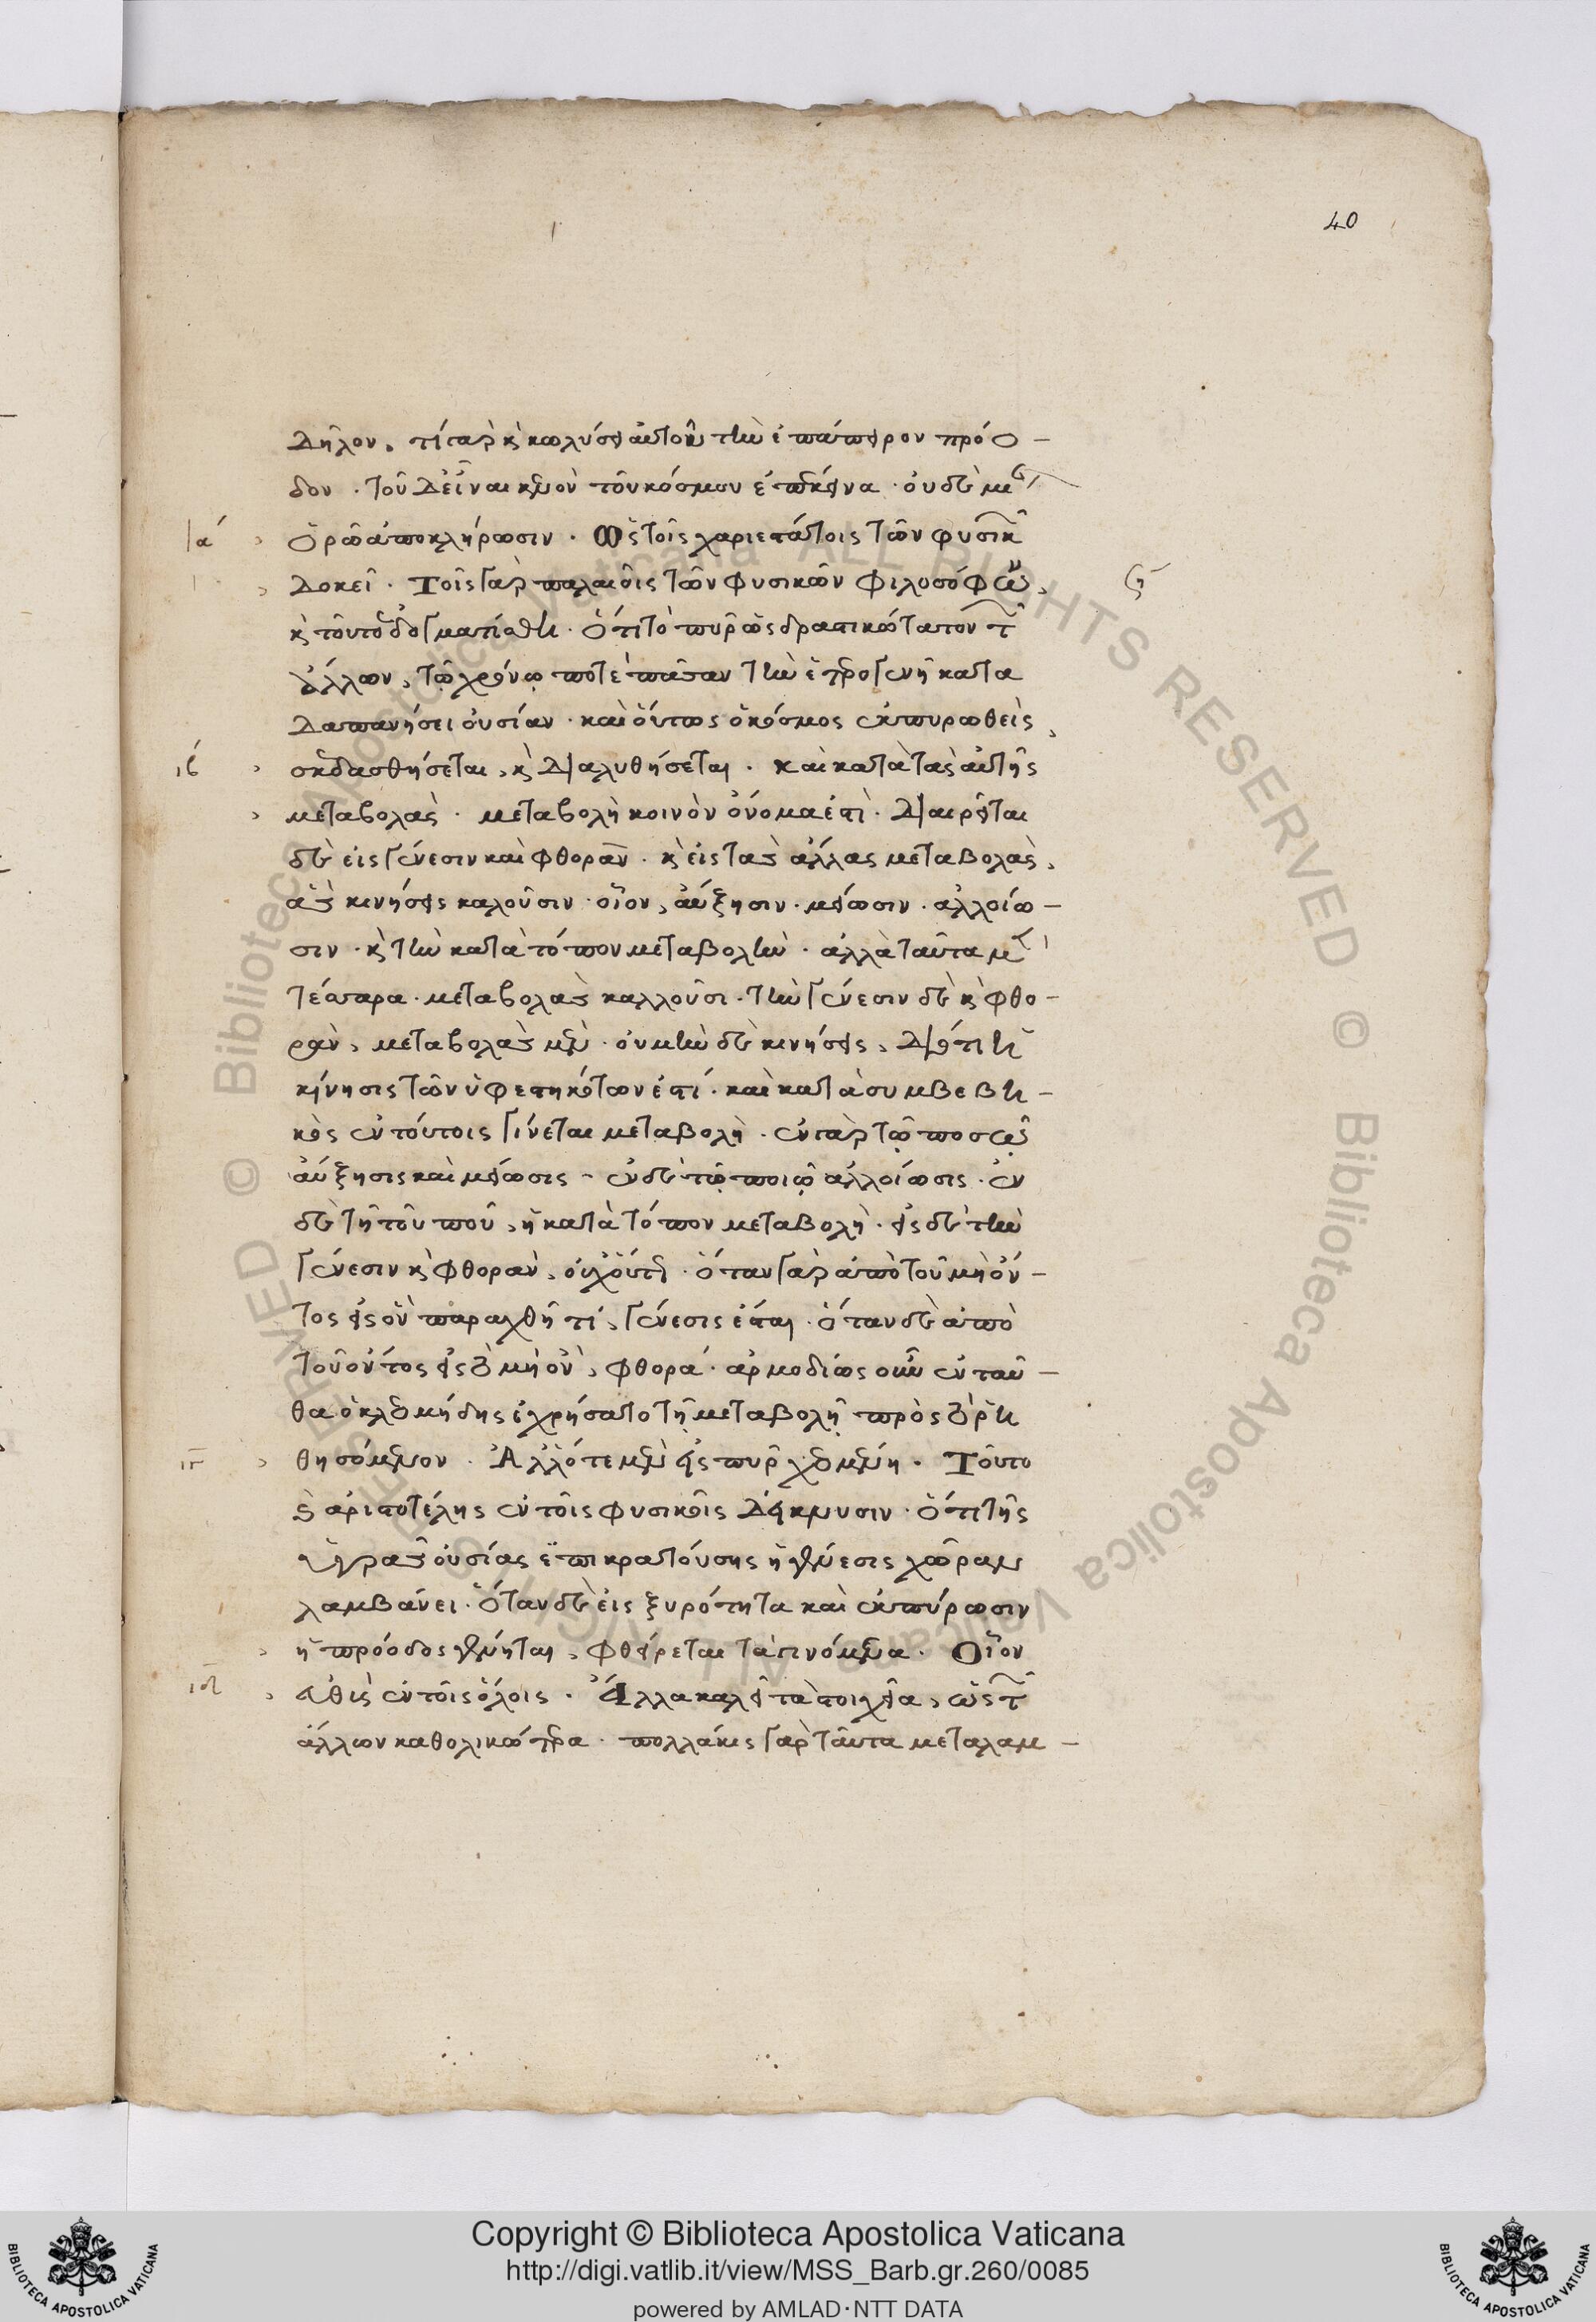 40
δῆλον, τί γὰρ κ̀ κωλύσει αὐτοῦ τὴν ἐπάπειρον πρόο –
δον . τοῦ δὲ εἶναι κενὸν τοῦ κόσμου ἐπέκεινα . οὐδὲ με
ιά ὁρῶ ἀποκλήρωσιν . Ὡς τοῖς χαριετάτοις τῶν φυσικῶν
δοκεῖ . Τοῖς γὰρ παλαιοῖς τῶν φυσικῶν φιλοσόφων,
κ̀ τοῦτο δογματίζεται . ὅτι τὸ πῦρ ὡς δραστικώτατον τῶν
ἄλλων, τῷ χρόνῳ ποτὲ πᾶσαν τὴν ἑτερογενῆ κατα
δαπανήσει οὐσίαν . καὶ οὕτως ὁ κόσμος ἐκπυρωθεὶς,
ιβ σκεδασθήσεται, κ̀ διαλυθήσεται . Καὶ κατὰ τὰς αὐτῆς
μεταβολὰς . μεταβολὴ κοινὸν ὄνομα ἐστὶ . διαιρεῖται
δὲ εἰς γένεσιν καὶ φθορὰν . κ̀ εἰς τὰς ἄλλας μεταβολὰς,
ἃς κινήσεις καλοῦσιν . οἷον, αὔξησιν . μείωσιν . ἀλλοίω –
σιν . κ̀ τὴν κατὰ τόπον μεταβολὴν . ἀλλὰ ταῦτα μὲν
τέσσαρα . μεταβολὰς καλλοῦσι . τὴν γένεσιν δὲ κ̀ φθο –
ρὰν, μεταβολὰς μὲν . οὐ μὴν δὲ κινήσεις, διότι ἡ
κίνησις τῶν ὑφεστηκότων ἐστί . καὶ κατὰ συμβεβη –
κὸς ἐν τούτοις γίνεται μεταβολὴ . ἐν γὰρ τῷ ποσῷ
αὔξησις καὶ μείωσις – ἐν δὲ τῷ ποιῷ ἀλλοίωσις . ἐν
δὲ τῇ τοῦ ποῦ, ἡ κατὰ τόπον μεταβολὴ . εἰς δὲ τὴν
γένεσιν κ̀ φθορὰν, οὐχ οὕτως . ὅταν γὰρ ἀπὸ τοῦ μὴ ὄν –
τος εἰς ὂν παραχθῆ τί, γένεσις ἐσται . ὅταν δὲ ἀπὸ
τοῦ ὄντος εἰς τὸ μὴ ὂν, φθορά . ἁρμοδίως οὖν ἐνταῦ –
θα ὁ κλεομήδης ἐχρήσατο τῇ μεταβολῇ πρὸς τὸ ῥη
ιγ θησόμενον . Ἀλλότε μὲν εἰς πῦρ χεομένη . Τοῦτο
κ̀ ἀριστοτέλης ἐν τοῖς φυσικοῖς δείκνυσιν . ὅτι τῆς
ὑγρᾶς οὐσίας ἐπικρατούσης ἡ γένεσις χώραν
λαμβάνει . ὅταν δὲ εἰς ξυρότητα καὶ ἐκπύρωσιν
ἡ πρόοδος γένηται, φθείρεται τὰ γινόμενα . Οἷον
ιδ εἴθις ἐν τοῖς ὅλοις . Ἀλλα καλεῖ τὰ στοιχεῖα, ὡς τῶν
ἄλλων καθολικώτερα . πολλάκις γὰρ ταῦτα μεταλαμ –
Copyright © Biblioteca Apostolica Vaticana
http://digi.vatlib.it/view/MSS_Barb.gr.260/0085
powered by AMLAD·NTT DATA